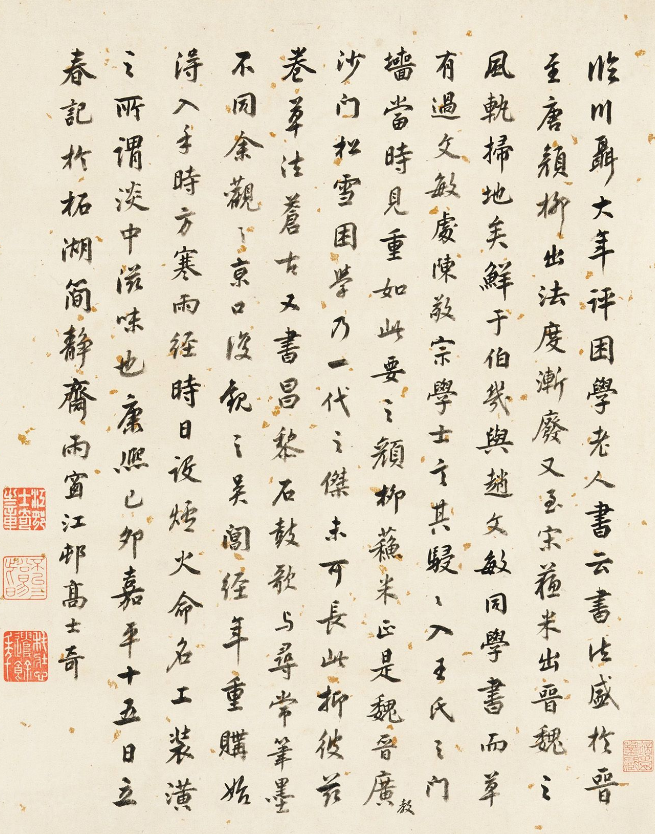 臨川聶大年評困學老人書云書法盛於晉
至唐顏柳出法度漸廢又至宋蘇米出晉魏之
風軌掃地矣鮮于伯幾與趙文敏同學書而草
有過文敏處陳敬宗學士言其駸〻入王氏之門
墻當時見重如此要之顏柳蘇米正是魏晉廣教
沙門松雪困學乃一代之傑未可長此抑彼茲
卷草法蒼古又書昌黎石鼓歌与尋常筆墨
不同余觀〻京口復觀之吳閶經年重購始
淂入手時方寒雨經時日設爐火命名工裝潢
之所謂淡中滋味也康熙己卯嘉平十五日立
春記於柘湖簡靜齋雨窗江邨高士奇